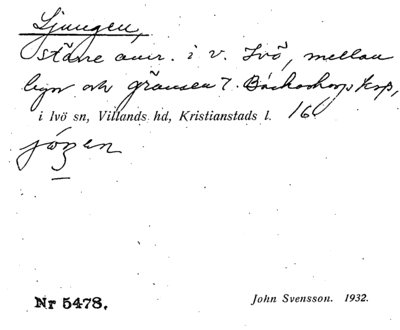 Ljungen,
större omr. i v. Ivö, mellan
byn och gränsen t. Bäckaskogs ksp,
i Ivö sn, Villands hd, Kristianstads l. 16
Nr 5478.
John Svensson. 1932.